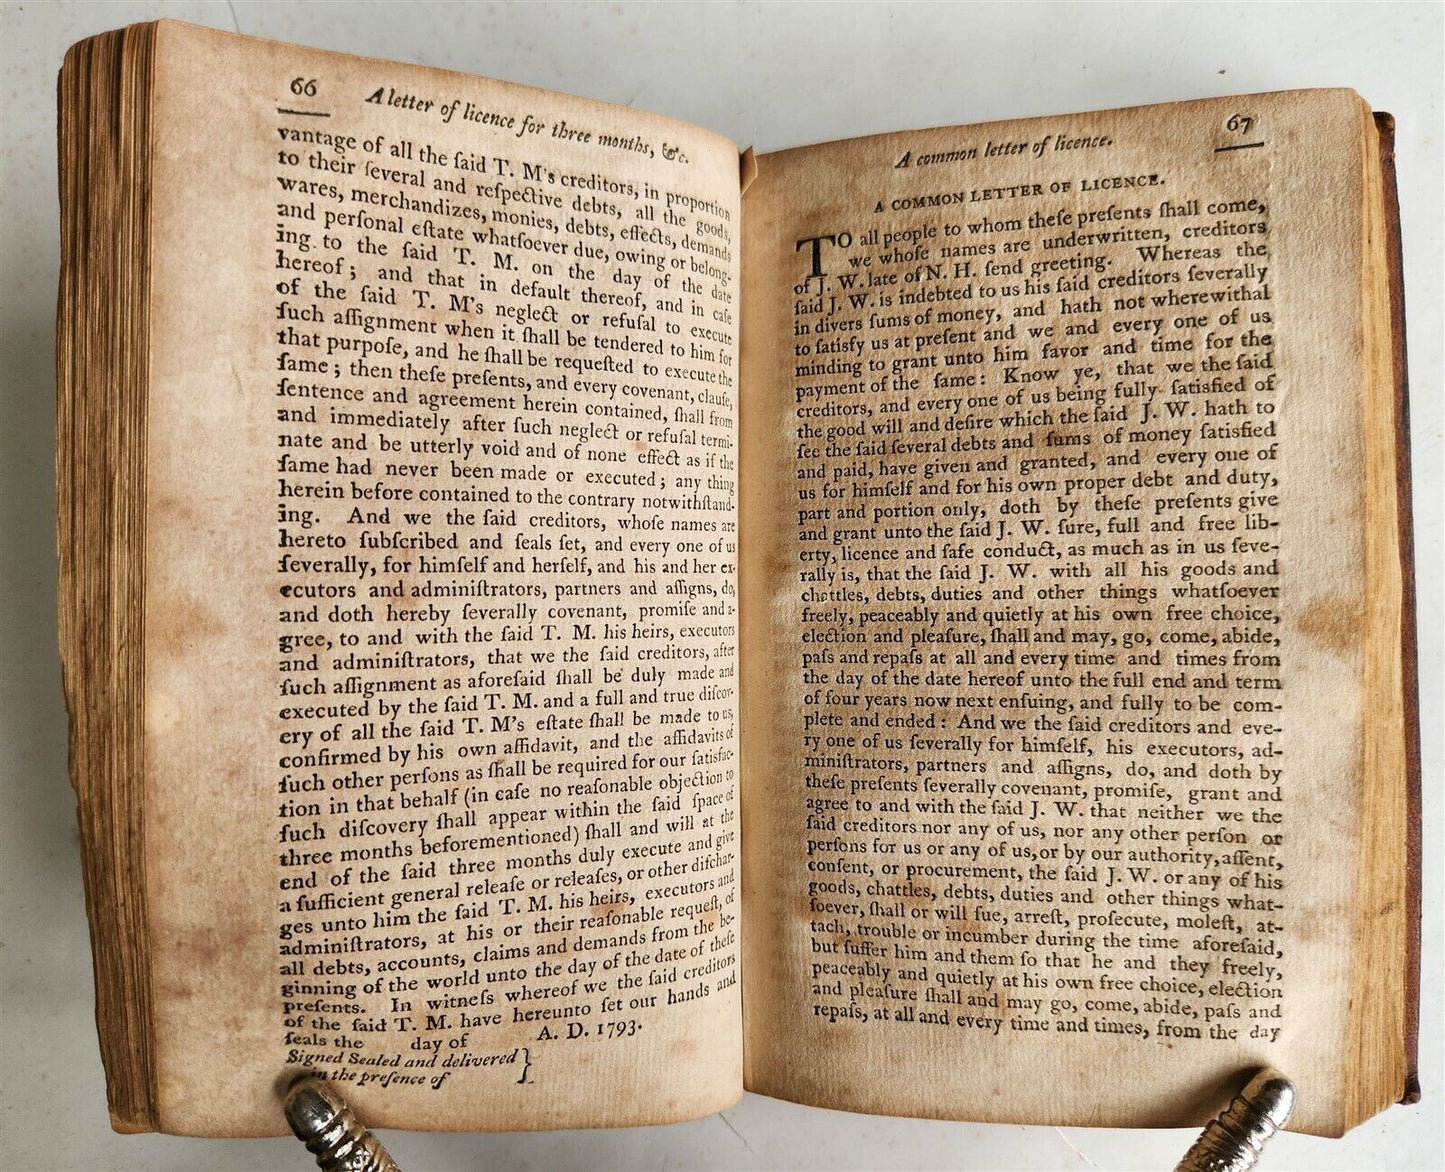 66
A letter of licence for three months, &c.
vantage of all the ſaid T. M's creditors, in proportion
to their ſeveral and reſpective debts, all the goods,
wares, merchandizes, monies, debts, effects, demands
and perſonal eſtate whatſoever due, owing or belong-
ing to the ſaid T. M. on the day of the date
hereof; and that in default thereof, and in caſe
of the ſaid T. M's neglect or refuſal to execute
ſuch aſſignment when it ſhall be tendered to him for
that purpoſe, and he ſhall be requeſted to execute the
ſame; then theſe preſents, and every covenant, clauſe,
ſentence and agreement herein contained, ſhall from
and immediately after ſuch neglect or refuſal termi-
nate and be utterly void and of none effect as if the
ſame had never been made or executed; any thing
herein before contained to the contrary notwithſtand-
ing. And we the ſaid creditors, whoſe names are
hereto ſubſcribed and ſeals ſet, and every one of us
ſeverally, for himſelf and herſelf, and his and her ex-
ecutors and adminiſtrators, partners and aſſigns, do,
and doth hereby ſeverally covenant, promiſe and a-
gree, to and with the ſaid T. M. his heirs, executors
and adminiſtrators, that we the ſaid creditors, after
ſuch aſſignment as aforeſaid ſhall be duly made and
executed by the ſaid T. M. and a full and true diſcov-
ery of all the ſaid T. M's eſtate ſhall be made to us,
confirmed by his own affidavit, and the affidavits of
ſuch other perſons as ſhall be required for our ſatisfac-
tion in that behalf (in caſe no reaſonable objection to
ſuch diſcovery ſhall appear within the ſaid ſpace of
three months beforementioned) ſhall and will at the
end of the ſaid three months duly execute and give
a ſufficient general releaſe or releaſes, or other diſchar-
ges unto him the ſaid T. M. his heirs, executors and
adminiſtrators, at his or their reaſonable requeſt, of
all debts, accounts, claims and demands from the be-
ginning of the world unto the day of the date of theſe
preſents. In witneſs whereof we the ſaid creditors
of the ſaid T. M. have hereunto ſet our hands and
ſeals the day of A. D. 1793.
Signed Sealed and delivered }
in the preſence of
67
A common letter of licence.
A COMMON LETTER OF LICENCE.
TO all people to whom theſe preſents ſhall come,
we whoſe names are underwritten, creditors
of J. W. late of N. H. ſend greeting. Whereas the
ſaid J. W. is indebted to us his ſaid creditors ſeverally
in divers ſums of money, and hath not wherewithal
to ſatisfy us at preſent and we and every one of us
minding to grant unto him favor and time for the
payment of the ſame: Know ye, that we the ſaid
creditors, and every one of us being fully ſatisfied of
the good will and deſire which the ſaid J. W. hath to
ſee the ſaid ſeveral debts and ſums of money ſatisfied
and paid, have given and granted, and every one of
us for himſelf and for his own proper debt and duty,
part and portion only, doth by theſe preſents give
and grant unto the ſaid J. W. ſure, full and free lib-
erty, licence and ſafe conduct, as much as in us ſeve-
rally is, that the ſaid J. W. with all his goods and
chattles, debts, duties and other things whatſoever
freely, peaceably and quietly at his own free choice,
election and pleaſure, ſhall and may, go, come, abide,
paſs and repaſs at all and every time and times from
the day of the date hereof unto the full end and term
of four years now next enſuing, and fully to be com-
plete and ended: And we the ſaid creditors and eve-
ry one of us ſeverally for himſelf, his executors, ad-
miniſtrators, partners and aſſigns, do, and doth by
theſe preſents ſeverally covenant, promiſe, grant and
agree to and with the ſaid J. W. that neither we the
ſaid creditors nor any of us, nor any other perſon or
perſons for us or any of us, or by our authority, aſſent,
conſent, or procurement, the ſaid J. W. or any of his
goods, chattles, debts, duties and other things what-
ſoever, ſhall or will ſue, arreſt, proſecute, moleſt, at-
tach, trouble or incumber during the time aforeſaid,
but ſuffer him and them ſo that he and they freely,
peaceably and quietly at his own free choice, election
and pleaſure ſhall and may go, come, abide, paſs and
repaſs, at all and every time and times, from the day